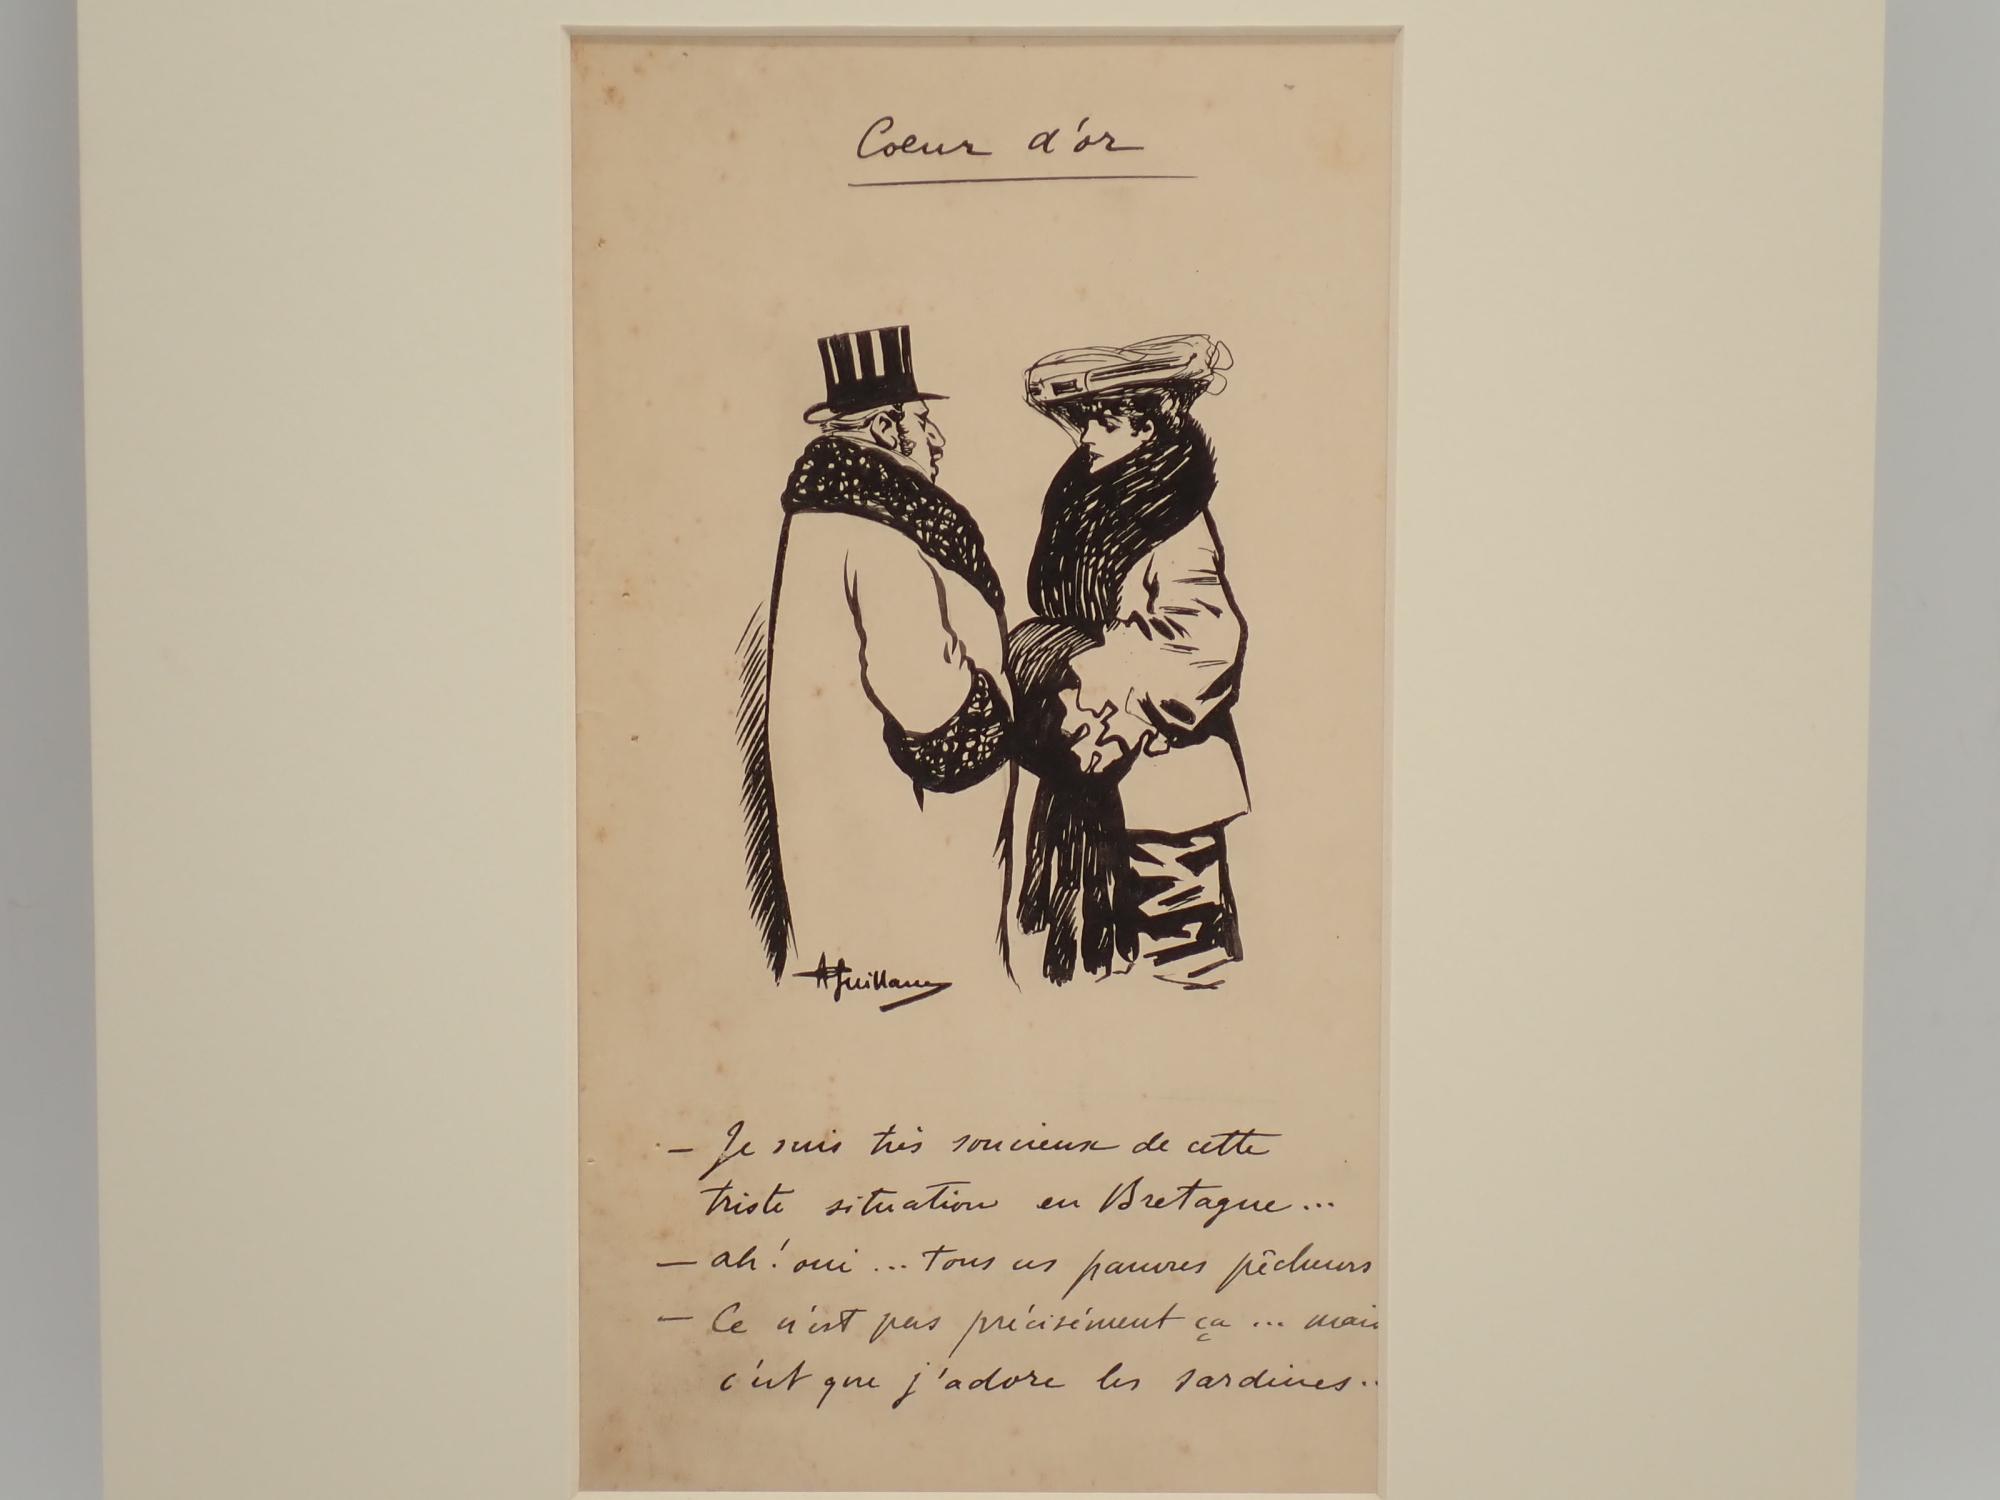 Coeur d'or
AGuillaume
— Je suis très soucieux de cette
triste situation en Bretagne...
— ah! oui... tous ces pauvres pêcheurs
— Ce n'est pas précisément ça... mais
c'est que j'adore les sardines..